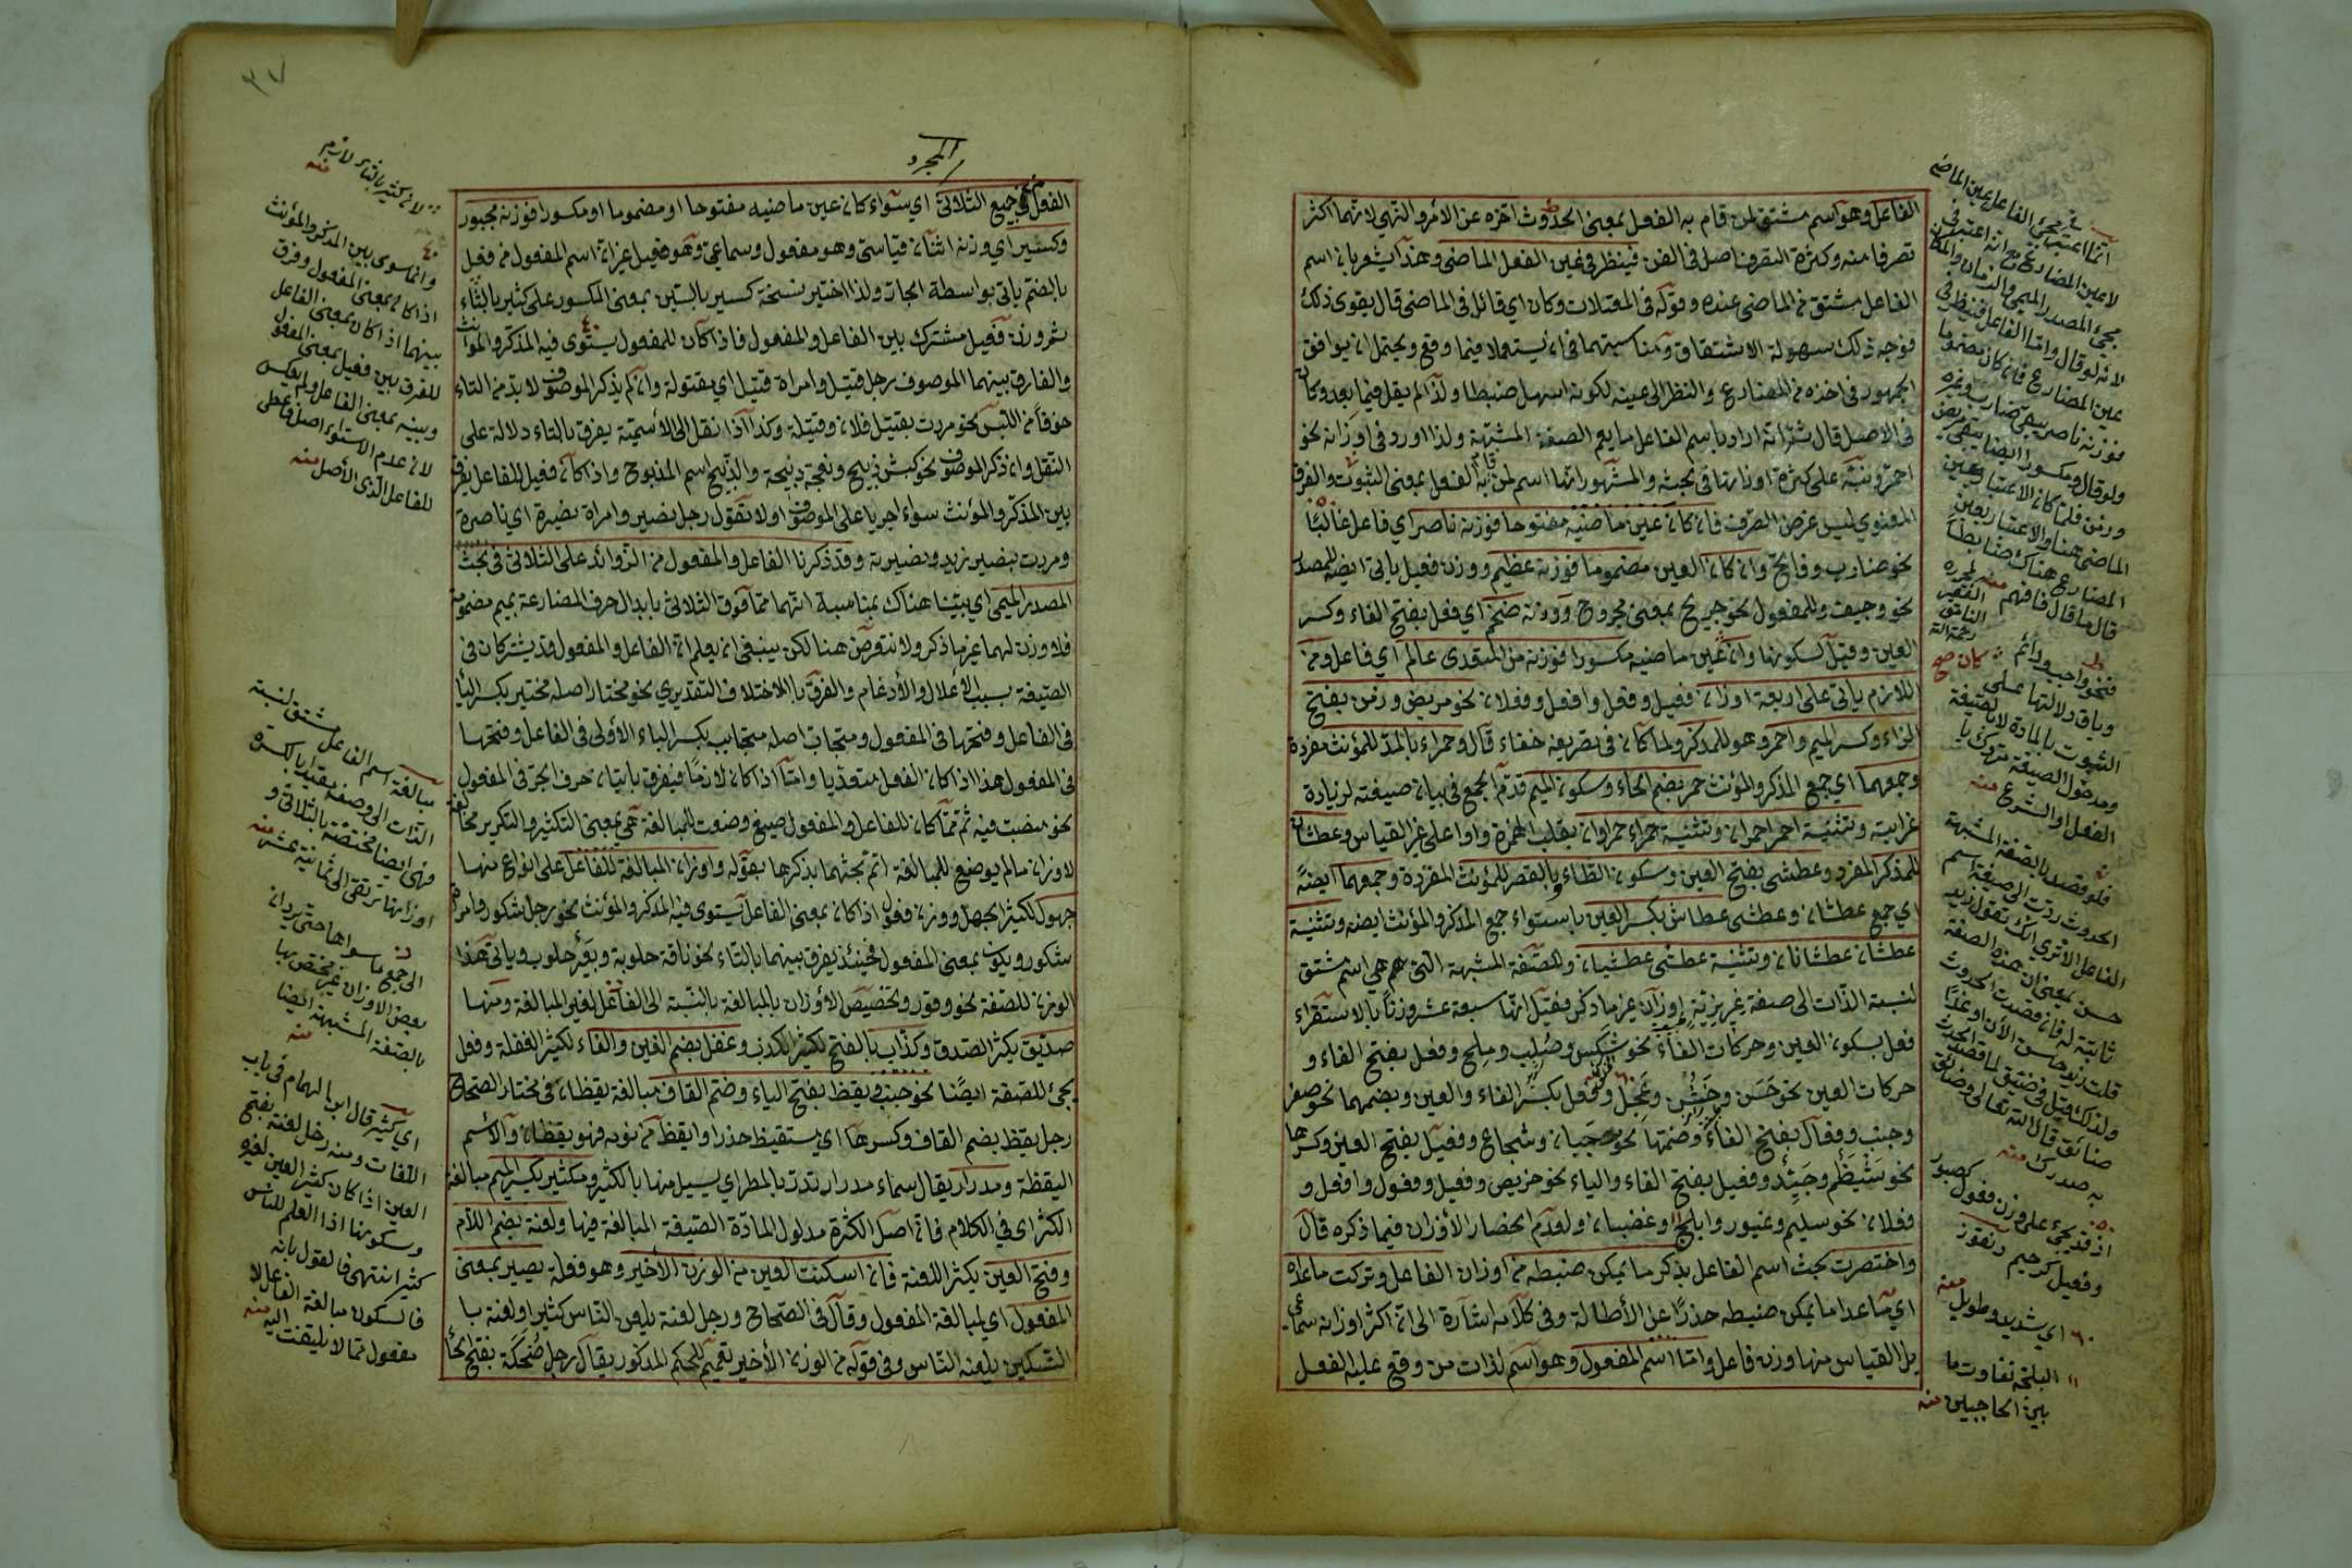 الفاعل وهو اسم مشتق لمن قام به الفعل بمعنى الحدوث اخره عن الأمر والنهي لانهما اكثر
تصرفا منه وكثرة التصرف اصل في الفن فينظر في عين الفعل الماضي وهذا يشعر بان اسم
الفاعل مشتق من الماضي عنده وقوله في المعتلات وكان اي قائل في الماضي قال يقوى ذلك
فوجه ذلك سهولة الاشتقاق ومناسبتهما في ان يستعملا فيما وقع ويحتمل ان يوافق
الجمهور في اخذه من المضارع والنظر الى عينه لكونه اسهل ضبطا ولذا لم يقل فيما بعد وكان
في الاصل قال ثم انه اراد باسم الفاعل ما يعم الصفة المشبهة ولذا اورد في اوزانه نحو
احمر ونبه على كثرة اوزانها في بحثه والمشهور انها اسم لمن قام به الفعل بمعنى الثبوت والفرق
المعنوي ليس غرض الصرف فان كان عين ماضيه مفتوحا فوزنه ناصر اي فاعل غالبا
نحو ضارب وفاتح وان كان العين مضموما فوزنه عظيم ووزن فعيل ياتى ايضا للمصدر
نحو وجيف وللمفعول نحو جريح بمعنى مجروح ووزنه ضخم اي فعل بفتح الفاء وكسر
العين وقيل لسكونها وان عين ماضيه مكسورا فوزنه من المتعدى عالم اي فاعل ومن
اللازم ياتى على اربعة اوزان فعيل وفعل وافعل وفعلان نحو مريض وزمن بفتح
الزاء وكسر الميم واحمر وهو للمذكر ولما كان في تصريفه خفاء قال وحمراء بالمد للمؤنث مفردة
وجمعهما اي جمع المذكر والمؤنث حمر بضم الحاء وسكون الميم قدم الجمع في بيان صيغته لزيادة
غرابته وتثنية احمر احمران وتثنية حمراء حمراوان بقلب الهمزة واوا على غير القياس وعطشان
للمذكر المفرد وعطشى بفتح العين وسكون الطاء وبالقصر للمؤنث المفردة وجمعهما ايضا
اي جمع عطشان وعطشى عطاش بكسر العين باستواء جمع المذكر والمؤنث ايضه وتثنية
عطشان عطشانان وتثنية عطشى عطشيان وللصفة المشبهة التي هي اسم مشتق
لنسبة الذات الى صفة غريزية اوزان غير ما ذكر فقيل انها سبعة عشر وزنا بالاستقراء
فعل بسكون العين وحركات الفاء نحو شكس وصلب وملح وفعل بفتح الفاء و
حركات العين نحو حسن وخشن وعجل وفعل بكسر الفاء والعين وبضمهما نحو صفر
وجنب وفعال بفتح الفاء وضمها نحو جبان وشجاع وفعيل بفتح العين وكسرها
نحو شيظم وجيد وفعيل بفتح الفاء والياء نحو حريص وفعيل وفعول وافعل و
فعلان نحو سليم وغيور وابلج وغضبان ولعدم انحصار الأوزان فيما ذكره قال
واختصرت بحث اسم الفاعل بذكر ما يمكن ضبطه من اوزان الفاعل وتركت ما عداه
اي ما عدا ما يمكن ضبطه حذرا عن الأطالة وفي كلامه اشارة الى ان اكثر اوزانه سماعى
بل القياس منها وزن فاعل واما اسم المفعول وهو اسم لذات من وقع عليه الفعل
انما اعتبر في مجيء الفاعل عين الماضي
لا عين المضارع مع انه اعتبر في
مجيء المصدر الميمي والزمان والمكان
لانه لو قال واما الفاعل فينظر في
عين المضارع فان كان مضموما
فوزنه ناصر يبقى ضارب وغيره
ولو قال ومكسورا ايضا يبقى مريض
وزمن فلما كان الاعتبار بعين
الماضي هنا والاعتبار بعين
المضارع هناك ضابطا
قال ما قال فافهم منه لمحرره
الفقير
رحمة الله
فنحو واجب ودائم
وباق دلالتها على
الثبوت بالمادة لا بالصيغة
ومدخول الصيغة متروك يا
الفعل او الشرع منه
كان صح
فلو قصد بالصفة المشبهة
الحدوث ردت الى صيغة اسم
الفاعل الا ترى انك تقول زيد
حسن بمعنى ان هذه الصفة
ثابتة له فان قصدت الحدوث
قلت زيد حاسن الآن او غدا
ولذلك قيل في ضيق لما قصد الحدوث
ضائق قال الله تعالى وضائق
به صدرك منه
اذ قد يجيء على وزن فعول كصبور
وفعيل كرحيم
اي شديد وطويل منه
البلجة تفاوت ما
بين الحاجبين منه
٣٧
المجرد
الفعل من جميع الثلاثى اي سواء كان عين ماضيه مفتوحا او مضموما او مكسورا فوزنه مجبور
وكسير اي وزنه اثنان قياسي وهو مفعول وسماعي وهو فعيل غير ان اسم المفعول من فعل
بالضم ياتى بواسطة الجار ولذا اختير نسخة كسير بالسين بمعنى المكسور على كثير بالثاء
ثم وزن فعيل مشترك بين الفاعل والمفعول فاذا كان للمفعول يستوى فيه المذكر والمؤنث
والفارق بينهما الموصوف رجل قتيل وامراة قتيل اي مقتولة وان لم يذكر الموصوف لا بد من التاء
خوفا من اللبس نحو مررت بقتيل فلان وقتيلة وكذا اذا نقل الى الأسمية يفرق بالتاء دلالة على
النقل وان ذكر الموصوف نحو كبش ذبيح ونعجة ذبيحة والذبيح اسم المذبوح واذا كان فعيل للفاعل يفرق
بين المذكر والمؤنث سواء اجريا على الموصوف او لا تقول رجل نصير وامراة نصيرة اي ناصرة
ومررت بنصير زيد ونصيرته وقد ذكرنا الفاعل والمفعول من الزوائد على الثلاثى في بحث
المصدر الميمى اي بينا هناك بمناسبة انهما مما فوق الثلاثى بابدال حرف المضارعة بميم مضمومة
فلا وزن لهما غير ما ذكر ولا نتعرض هنا لكن ينبغى ان يعلم ان الفاعل والمفعول قد يشتركان في
الصيغة بسبب الاعلال والأدغام والفرق بالاختلاف التقديري نحو مختار اصله مختير بكسر اليا
في الفاعل وفتحها في المفعول ومتجاب اصله متجابب بكسر الباء الأولى في الفاعل وفتحها
في المفعول هذا اذا كان الفعل متعديا واما اذا كان لازما فيفرق باتيان حرف الجر في المفعول
نحو منصب فيه ثم لما كان للفاعل والمفعول صيغ وضعت للمبالغة هي بمعنى التكثير والتكرير مخالفة
لاوزان ما لم يوضع للمبالغة اتم بحثهما بذكرها بقوله واوزان المبالغة للفاعل على انواع منها
جهول لكثير الجهل ووزن فعول اذا كان بمعنى الفاعل يستوى فيه المذكر والمؤنث نحو رجل شكور وامراة
شكور ويكون بمعنى المفعول فحينئذ يفرق بينهما بالتاء نحو ناقة حلوبة وبعير حلوب وياتى هذا
الوزن للصفة نحو وقور وتخصيص الأوزان بالمبالغة بالنسبة الى الفاعل لغير المبالغة ومنها
صديق بكثر الصدق وكذاب بالفتح لكثير الكذب وغفل بضم الغين والفاء لكثير الغفلة وفعل
يجئ للصفة ايضا نحو جنب ويقظ بفتح الياء وضم القاف مبالغة يقظان في مختار الصحاح
رجل يقظ بضم القاف وكسرها اي مستقيظ حذر وايقظه من نومه فهو يقظان والأسم
اليقظة ومدرار يقال سماء مدرار تدر بالمطر اي يسيل منها بالكثير ومكثير بكسر الميم مبالغة
الكثر اي في الكلام فان اصل الكثرة مدلول المادة الصيغة المبالغة فيها ولعنة بضم اللأم
وفتح العين بكثر اللعنة فان اسكنت العين من الوزن الأخير وهو فعلة يصير بمعنى
المفعول اي لمبالغة المفعول وقال في الصحاح ورجل لعنة يلعن الناس كثيرا ولعنة با
التسكين يلعنه الناس وفي قوله من الوزن الأخير تعميم للحكم المذكور يقال رجل ضحكة بفتح الحا
لان كثير بالثاء لازم
منه
وانما سوى بين المذكر والمؤنث
اذا كان بمعنى المفعول وفرق
بينهما اذا كان بمعنى الفاعل
للفرق بين فعيل بمعنى المفعول
وبينه بمعنى الفاعل ولم يعكس
لان عدم الاستواء اصل فاعطى
للفاعل الذى الأصل منه
مبالغة اسم الفاعل مشتق لنسبة
الذات الى وصفه مقيدا بالكثرة
فهى ايضا مختصة بالثلاثى و
اوزانها ترتقى الى ثمانية عشر منه
الى جميع ما سواها حتى يرد ان
بعض الاوزان غير مختص بها
بالصفة المشبهة ايضا
منه
اي كثير قال ابو الهمام في باب
اللغات ومنه رجل لعنة بفتح
العين اذا كان كثير اللعن لغيره
وسكونها اذا العلم للناس
كثيرا انتهى فالقول بانه
فالسكون مبالغة الفاعل لا
مفعول مما لا يلتفت اليه منه